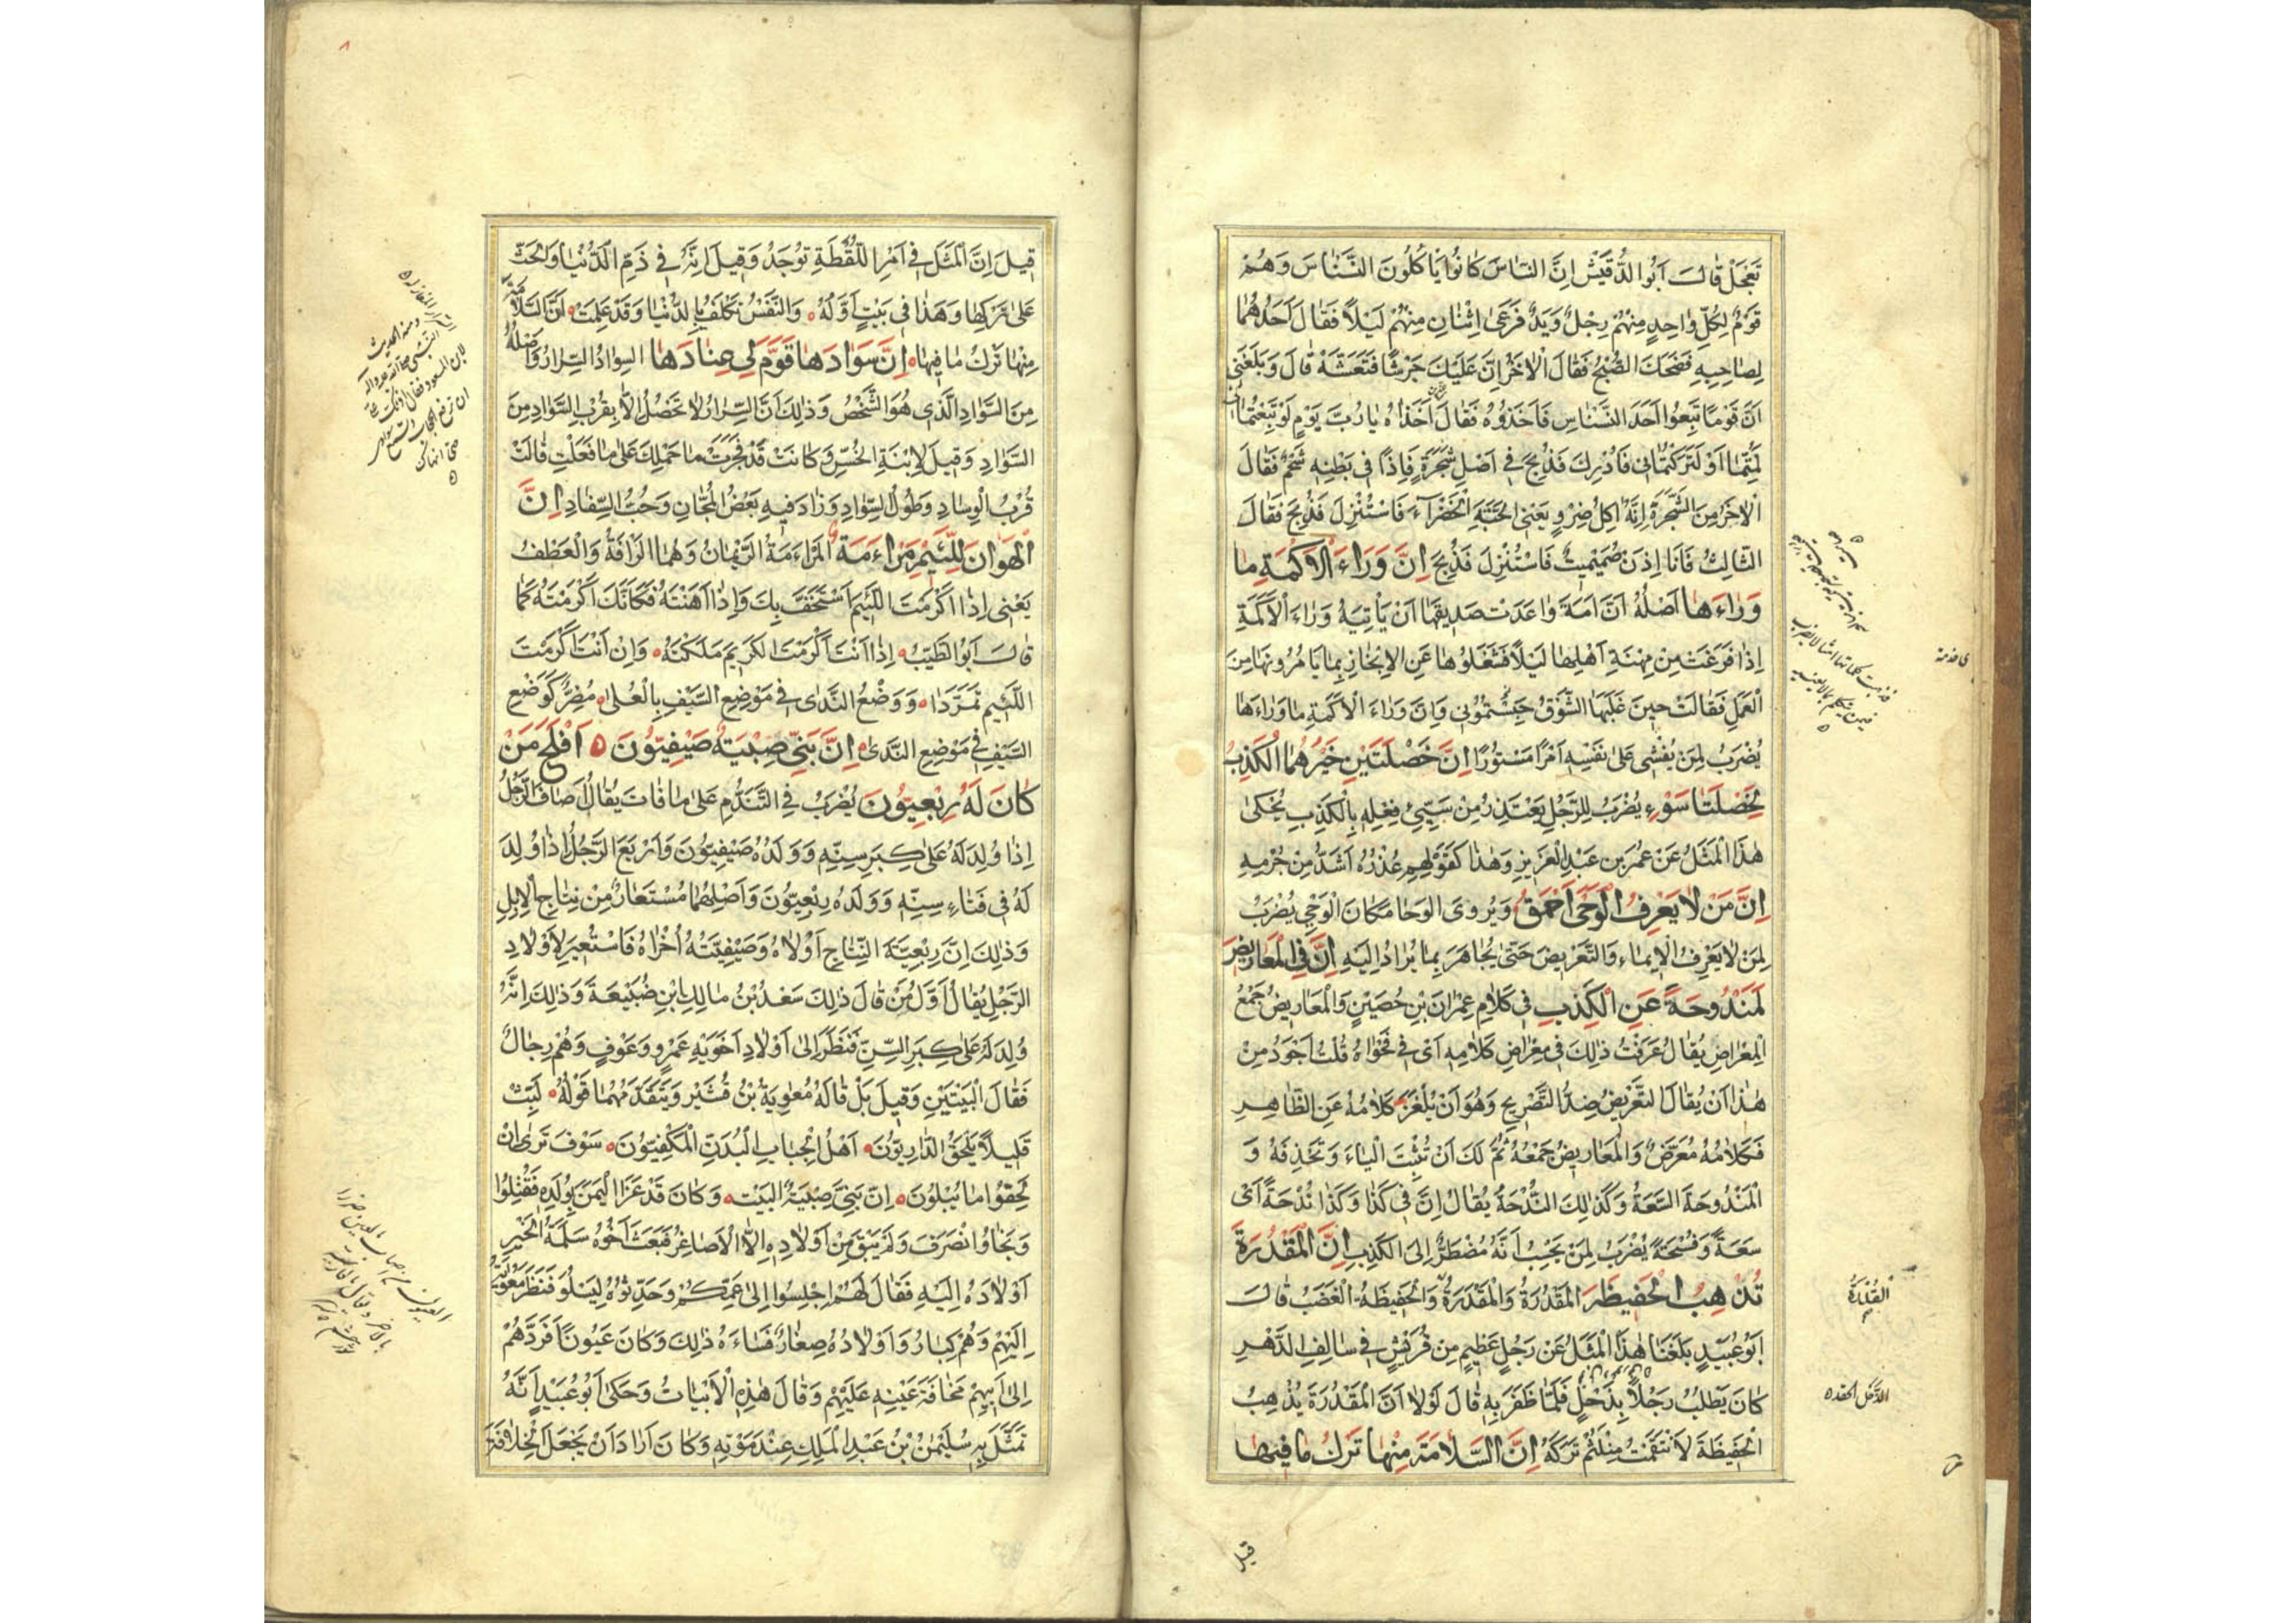 تَعْجَلْ قَالَ أَبُو الدُّقَيْشِ إِنَّ النَّاسَ كَانُوا يَأْكُلُونَ النَّسْنَاسَ وَهُمْ
قَوْمٌ لِكُلِّ وَاحِدٍ مِنْهُمْ رِجْلٌ وَيَدٌ فَرَعَى اِثْنَانِ مِنْهُمْ لَيْلًا فَقَالَ أَحَدُهُمَا
لِصَاحِبِهِ فَضَحَكَ الصُّبْحُ فَقَالَ الْآخَرُ إِنَّ عَلَيْكَ جَرَشًا فَتَعَشَّهْ قَالَ وَبَلَغَنِي
أَنَّ قَوْمًا تَبِعُوا أَحَدَ النَّسْنَاسِ فَأَخَذُوهُ فَقَالَ لِلَّذَيْنِ أَخَذَاهُ يَا رُبَّ يَوْمٍ لَوْ تَبِعْتُمَانِي
لَمُتُّمَا أَوْ لَتَرَكْتُمَانِي فَأُدْرِكَ فَذُبِحَ فِي أَصْلِ شَجَرَةٍ فَإِذًا فِي بَطْنِهِ شَحْمٌ فَقَالَ
الْآخَرُ مِنَ الشَّجَرَةِ إِنَّهُ آكِلُ ضِرْوٍ يَعْنِي الْحَبَّةَ الْخَضْرَاءَ فَاسْتُنْزِلَ فَذُبِحَ فَقَالَ
الثَّالِثُ فَأَنَا إِذَنْ صُمَيْمِيتٌ فَاسْتُنْزِلَ فَذُبِحَ إِنَّ وَرَاءَ الْأَكَمَةِ مَا
وَرَاءَهَا أَصْلُهُ أَنَّ أَمَةً وَاعَدَتْ صَدِيقَهَا أَنْ يَأْتِيَهُ وَرَاءَ الْأَكَمَةِ
إِذَا فَرَغَتْ مِنْ مِهْنَةِ أَهْلِهَا لَيْلًا فَشَغَلُوهَا عَنِ الْإِنْجَازِ بِمَا يَأْمُرُونَهَا مِنَ
الْعَمَلِ فَقَالَتْ حِينَ غَلَبَهَا الشَّوْقُ حَبَسْتُمُونِي وَإِنَّ وَرَاءَ الْأَكَمَةِ مَا وَرَاءَهَا
يُضْرَبُ لِمَنْ يُفْشِي عَلَى نَفْسِهِ أَمْرًا مَسْتُورًا إِنَّ خَصْلَتَيْنِ خَيْرُهُمَا الْكَذِبُ
لَخَصْلَتَا سَوْءٍ يُضْرَبُ لِلرَّجُلِ يَعْتَذِرُ مِنْ سَيِّئِ فِعْلِهِ بِالْكَذِبِ يُحْكَى
هَذَا الْمَثَلُ عَنْ عُمَرَ بْنِ عَبْدِ الْعَزِيزِ وَهَذَا كَقَوْلِهِمْ عُذْرُهُ أَشَدُّ مِنْ جُرْمِهِ
إِنَّ مَنْ لَا يَعْرِفُ الْوَحَى أَحْمَقُ وَيُرْوَى الْوَحَا مَكَانَ الْوَحْيِ يُضْرَبُ
لِمَنْ لَا يَعْرِفُ الْإِيمَاءَ وَالتَّعْرِيضَ حَتَّى يُجَاهَرَ بِمَا يُرَادُ إِلَيْهِ إِنَّ فِي الْمَعَارِيضِ
لَمَنْدُوحَةً عَنِ الْكَذِبِ فِي كَلَامِ عِمْرَانَ بْنِ حُصَيْنٍ وَالْمَعَارِيضُ جَمْعُ
الْمِعْرَاضِ يُقَالُ عَرَفْتُ ذَلِكَ فِي مِعْرَاضِ كَلَامِهِ أَيْ فِي فَحْوَاهُ قُلْتُ أَجْوَدُ مِنْ
هَذَا أَنْ يُقَالَ التَّعْرِيضُ ضِدُّ التَّصْرِيحِ وَهُوَ أَنْ يُلْغِزَ كَلَامَهُ عَنِ الظَّاهِرِ
فَكَلَامُهُ مُعَرَّضٌ وَالْمَعَارِيضُ جَمْعُهُ ثُمَّ لَكَ أَنْ تُثْبِتَ الْيَاءَ وَتَحْذِفَهُ وَ
الْمَنْدُوحَةُ السَّعَةُ وَكَذَلِكَ النُّدْحَةُ يُقَالُ إِنَّ فِي كَذَا وَكَذَا نُدْحَةً أَيْ
سَعَةً وَفُسْحَةً يُضْرَبُ لِمَنْ يَحْسِبُ أَنَّهُ مُضْطَرٌّ إِلَى الْكَذِبِ إِنَّ الْمَقْدُرَةَ
تُذْهِبُ الْحَفِيظَةَ الْمَقْدُرَةُ وَالْمَقْدِرَةُ وَالْحَفِيظَةُ الْغَضَبُ قَالَ
أَبُو عُبَيْدٍ بَلَغَنَا هَذَا الْمَثَلُ عَنْ رَجُلٍ عَظِيمٍ مِنْ قُرَيْشٍ فِي سَالِفِ الدَّهْرِ
كَانَ يَطْلُبُ رَجُلًا بِذَحْلٍ فَلَمَّا ظَفَرَ بِهِ قَالَ لَوْلَا أَنَّ الْمَقْدُرَةَ يُذْهِبُ
الْحَفِيظَةَ لَانْتَقَمْتُ مِنْكَ ثُمَّ تَرَكَهُ إِنَّ السَّلَامَةَ مِنْهَا تَرْكُ مَا فِيهَا
الْقُدْرَةُ
الذَّحْلُ الحقد
قيل
٨
قِيلَ إِنَّ الْمَثَلَ فِي أَمْرِ اللُّقَطَةِ تُوجَدُ وَقِيلَ إِنَّهُ فِي ذَمِّ الدُّنْيَا وَالْحَثِّ
عَلَى تَرْكِهَا وَهَذَا فِي بَيْتٍ أَوَّلُهُ وَالنَّفْسُ تَكْلَفُ بِالدُّنْيَا وَقَدْ عَلِمَتْ أَنَّ السَّلَامَةَ
مِنْهَا تَرْكُ مَا فِيهَا إِنَّ سَوَادَهَا قَوَّمَ لِي عِنَادَهَا السِّوَادُ السِّرَارُ وَأَصْلُهُ
مِنَ السَّوَادِ الَّذِي هُوَ الشَّخْصُ وَذَلِكَ أَنَّ السِّرَارَ لَا تَحْصُلُ إِلَّا بِقُرْبِ السَّوَادِ مِنَ
السَّوَادِ وَقِيلَ لِابْنَةِ الْخُسِّ وَكَانَتْ قَدْ فَجَرَتْ مَا حَمَلَكِ عَلَى مَا فَعَلْتِ قَالَتْ
قُرْبُ الْوِسَادِ وَطُولُ السِّوَادِ وَزَادَ فِيهِ بَعْضُ الْمُجَّانِ وَحُبُّ السِّفَادِ إِنَّ
الْهَوَانَ لِلَّئِيمِ مَرْأَمَةٌ الْمَرْأَمَةُ الرَّئْمَانُ وَهُمَا الرَّأْفَةُ وَالْعَطْفُ
يَعْنِي إِذَا أَكْرَمْتَ اللَّئِيمَ اسْتَخَفَّ بِكَ وَإِذَا أَهَنْتَهُ فَكَأَنَّكَ أَكْرَمْتَهُ كَمَا
قَالَ أَبُو الطَّيِّبِ إِذَا أَنْتَ أَكْرَمْتَ الْكَرِيمَ مَلَكْتَهُ وَإِنْ أَنْتَ أَكْرَمْتَ
اللَّئِيمَ تَمَرَّدَا وَوَضْعُ النَّدَى فِي مَوْضِعِ السَّيْفِ بِالْعُلَى مُضِرٌّ كَوَضْعِ
السَّيْفِ فِي مَوْضِعِ النَّدَى إِنَّ بَنِيَّ صِبْيَةٌ صَيْفِيُّونَ أَفْلَحَ مَنْ
كَانَ لَهُ رِبْعِيُّونَ يُضْرَبُ فِي التَّنَدُّمِ عَلَى مَا فَاتَ يُقَالُ أَصَافَ الرَّجُلُ
إِذَا وُلِدَ لَهُ عَلَى كِبَرِ سِنِّهِ وَوَلَدُهُ صَيْفِيُّونَ وَأَرْبَعَ الرَّجُلُ إِذَا وُلِدَ
لَهُ فِي فَتَاءِ سِنِّهِ وَوَلَدُهُ رِبْعِيُّونَ وَأَصْلُهُمَا مُسْتَعَارٌ مِنْ نِتَاجِ الْإِبِلِ
وَذَلِكَ إِنَّ رِبْعِيَّةَ النِّتَاجِ أُولَاهُ وَصَيْفِيَّتَهُ أُخْرَاهُ فَاسْتُعِيرَ لِأَوْلَادِ
الرَّجُلِ يُقَالُ أَوَّلُ مَنْ قَالَ ذَلِكَ سَعْدُ بْنُ مَالِكِ ابْنِ ضُبَيْعَةَ وَذَلِكَ إِنَّهُ
وُلِدَ لَهُ عَلَى كِبَرِ السِّنِّ فَنَظَرَ إِلَى أَوْلَادِ أَخَوَيْهِ عَمْرٍو وَعَوْفٍ وَهُمْ رِجَالٌ
فَقَالَ الْبَيْتَيْنِ وَقِيلَ بَلْ قَالَهُ مُعَاوِيَةُ بْنُ قُشَيْرٍ وَيَتَقَدَّمُهُمَا قَوْلُهُ لَبِّثْ
قَلِيلًا يَلْحَقُ الدَّارِيُّونَ أَهْلُ الْجِبَابِ الْبُدَّنِ الْمَكْفِيُّونَ سَوْفَ تَرَى إِنْ
لَحِقُوا مَا يُبْلُونَ إِنَّ بَنِيَّ صِبْيَةٌ الْبَيْت وَكَانَ قَدْ غَزَا الْيَمَنَ بِوُلْدِهِ فَقُتِلُوا
وَنَجَا وَانْصَرَفَ وَلَمْ يَبْقَ مِنْ أَوْلَادِهِ إِلَّا الْأَصَاغِرُ فَبَعَثَ أَخُوهُ سَلَمَةُ الْخَيْرِ
أَوْلَادَهُ إِلَيْهِ فَقَالَ لَهُمْ اجْلِسُوا إِلَى عَمِّكُمْ وَحَدِّثُوهُ لِيَسْلُوَ فَنَظَرَ مُعَوِيَةُ
إِلَيْهِمْ وَهُمْ كِبَارٌ وَأَوْلَادُهُ صِغَارٌ فَسَاءَهُ ذَلِكَ وَكَانَ عَيُونًا فَرَدَّهُمْ
إِلَى أَبِيهِمْ مَخَافَةَ عَيْنِهِ عَلَيْهِمْ وَقَالَ هَذِهِ الْأَبْيَاتُ وَحَكَى أَبُو عُبَيْدٍ أَنَّهُ
تَمَثَّلَ بِهِ سُلَيْمَنُ بْنُ عَبْدِ الْمَلِكِ عِنْدَ مَوْتِهِ وَكَانَ أَرَادَ أَنْ يَجْعَلَ الْخِلَافَةَ